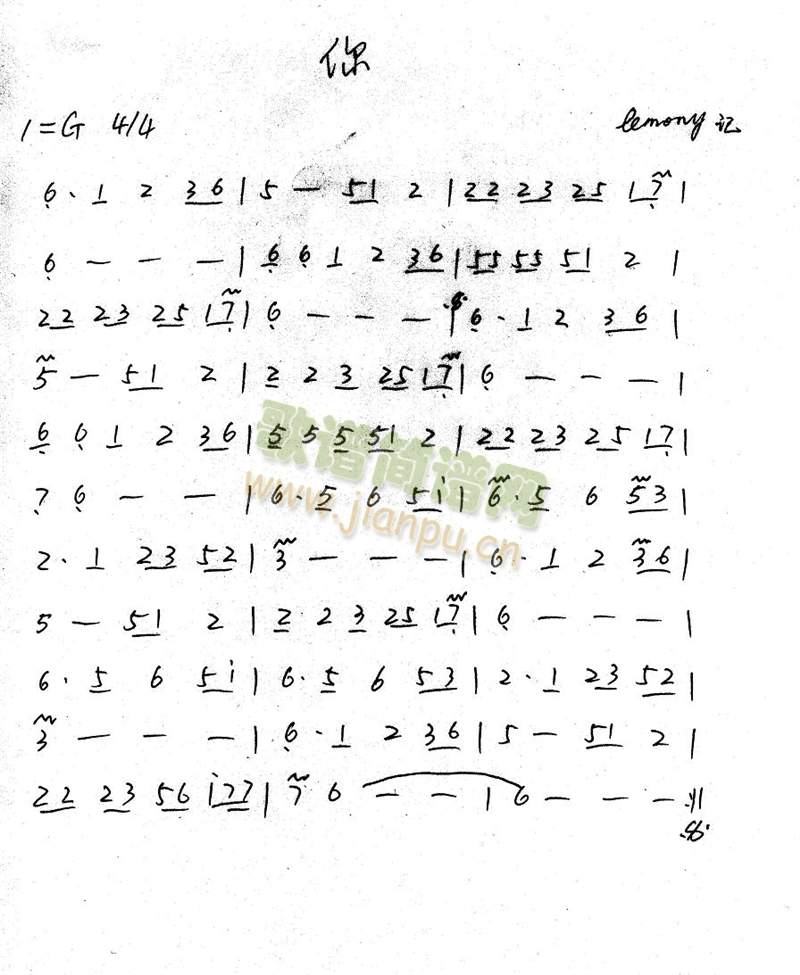 你
1=G 4/4 lemony 记
6· 1 2 36 | 5 — 51 2 | 22 23 25 17 |
6 — — — | 6 6 1 2 36 | 55 55 51 2 |
22 23 25 17 | 6 — — — | 6· 1 2 36 |
5 — 51 2 | 2 2 3 25 17 | 6 — — — |
6 6 1 2 36 | 5 5 5 51 2 | 22 23 25 17 |
7 6 — — | 6· 5 6 5i | 6· 5 6 53 |
2· 1 23 52 | 3 — — — | 6· 1 2 36 |
5 — 51 2 | 2 2 3 25 17 | 6 — — — |
6· 5 6 5i | 6· 5 6 53 | 2· 1 23 52 |
3 — — — | 6· 1 2 36 | 5 — 51 2 |
22 23 56 i77 | 7 6 — — | 6 — — — ||
歌谱简谱网
www.jianpu.cn